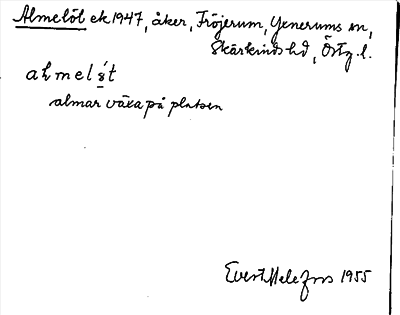 Almelöt ek 1947, åker, Fröjerum, Yxnerums sn,
Skärkinds hd, Östg. l.
almar växa på platsen
Evert Melefors 1955